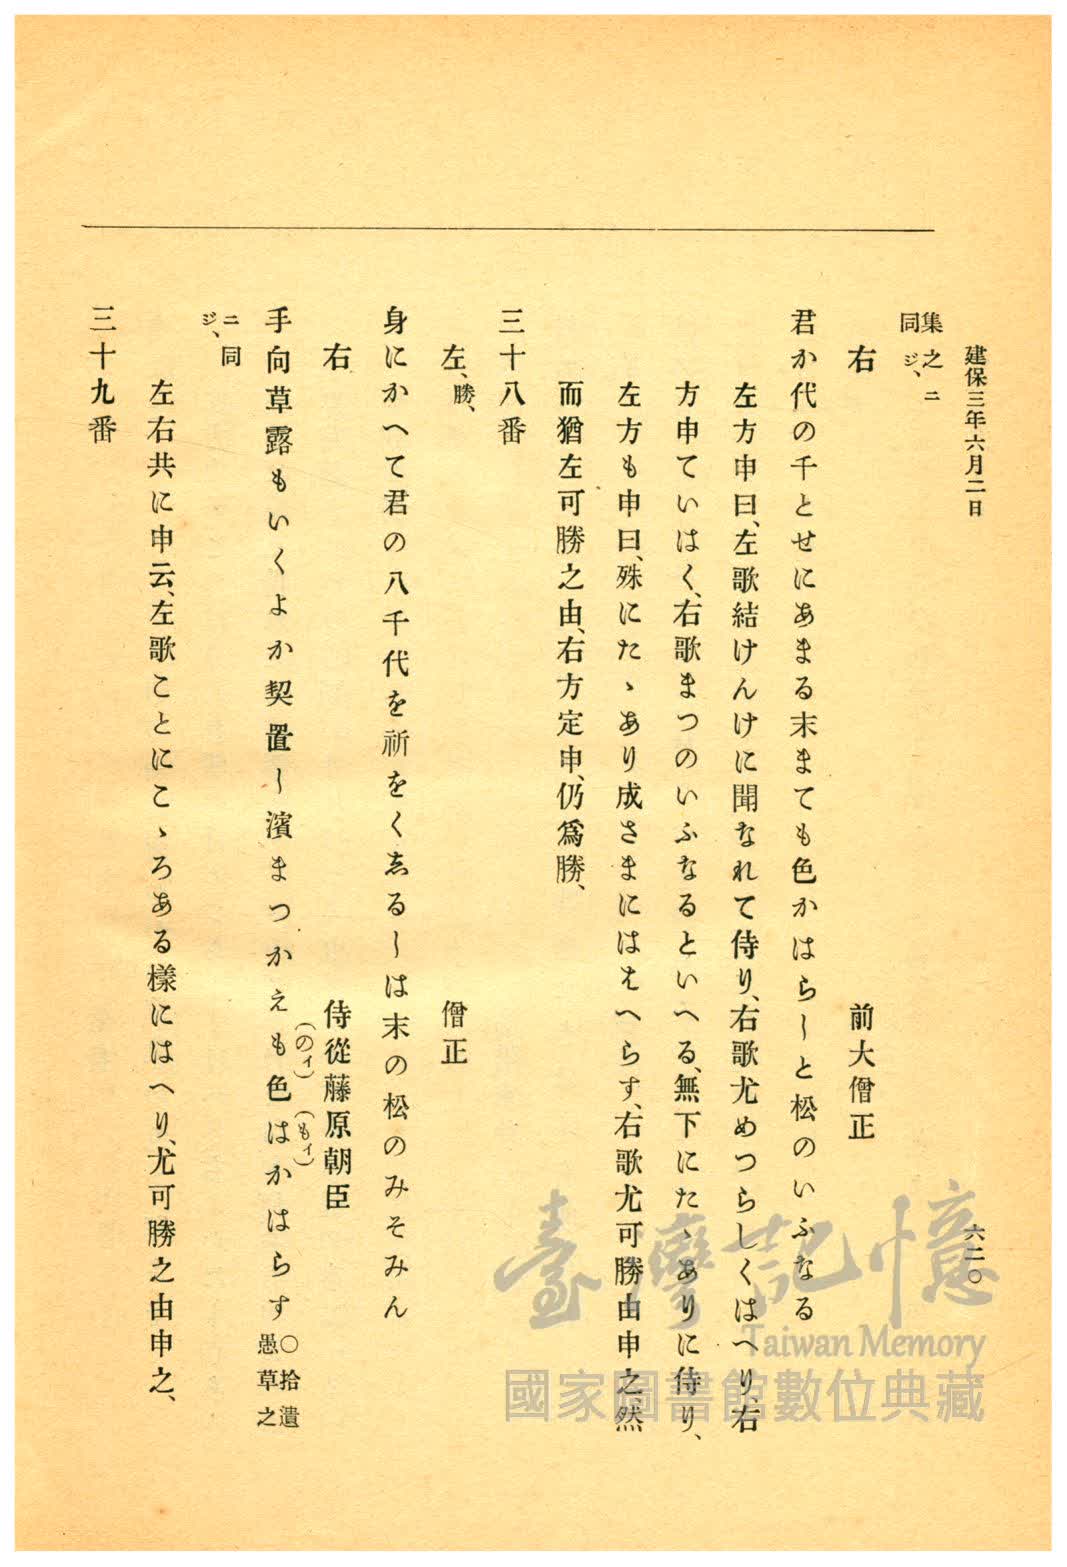 建保三年六月二日
六二〇
集之ニ
同ジ、
右
前大僧正
君か代の千とせにあまる末まても色かはらしと松のいふなる
左方申曰、左歌結けんけに聞なれて侍り、右歌尤めつらしくはへり、右
方申ていはく、右歌まつのいふなるといへる、無下にたゝありに侍り、
左方も申曰、殊にたゝあり成さまにはえへらす、右歌尤可勝由申之、然
而猶左可勝之由、右方定申、仍爲勝、
三十八番
左、勝、
僧正
身にかへて君の八千代を祈をくゑるしは末の松のみそみん
右
侍從藤原朝臣
(のイ)
(もイ)
手向草露もいくよか契置し濱まつかえも色はかはらす〇拾遺
愚草之
ニ同
ジ、
左右共に申云、左歌ことにこゝろある樣にはへり、尤可勝之由申之、
三十九番
臺灣記憶
Taiwan Memory
國家圖書館數位典藏